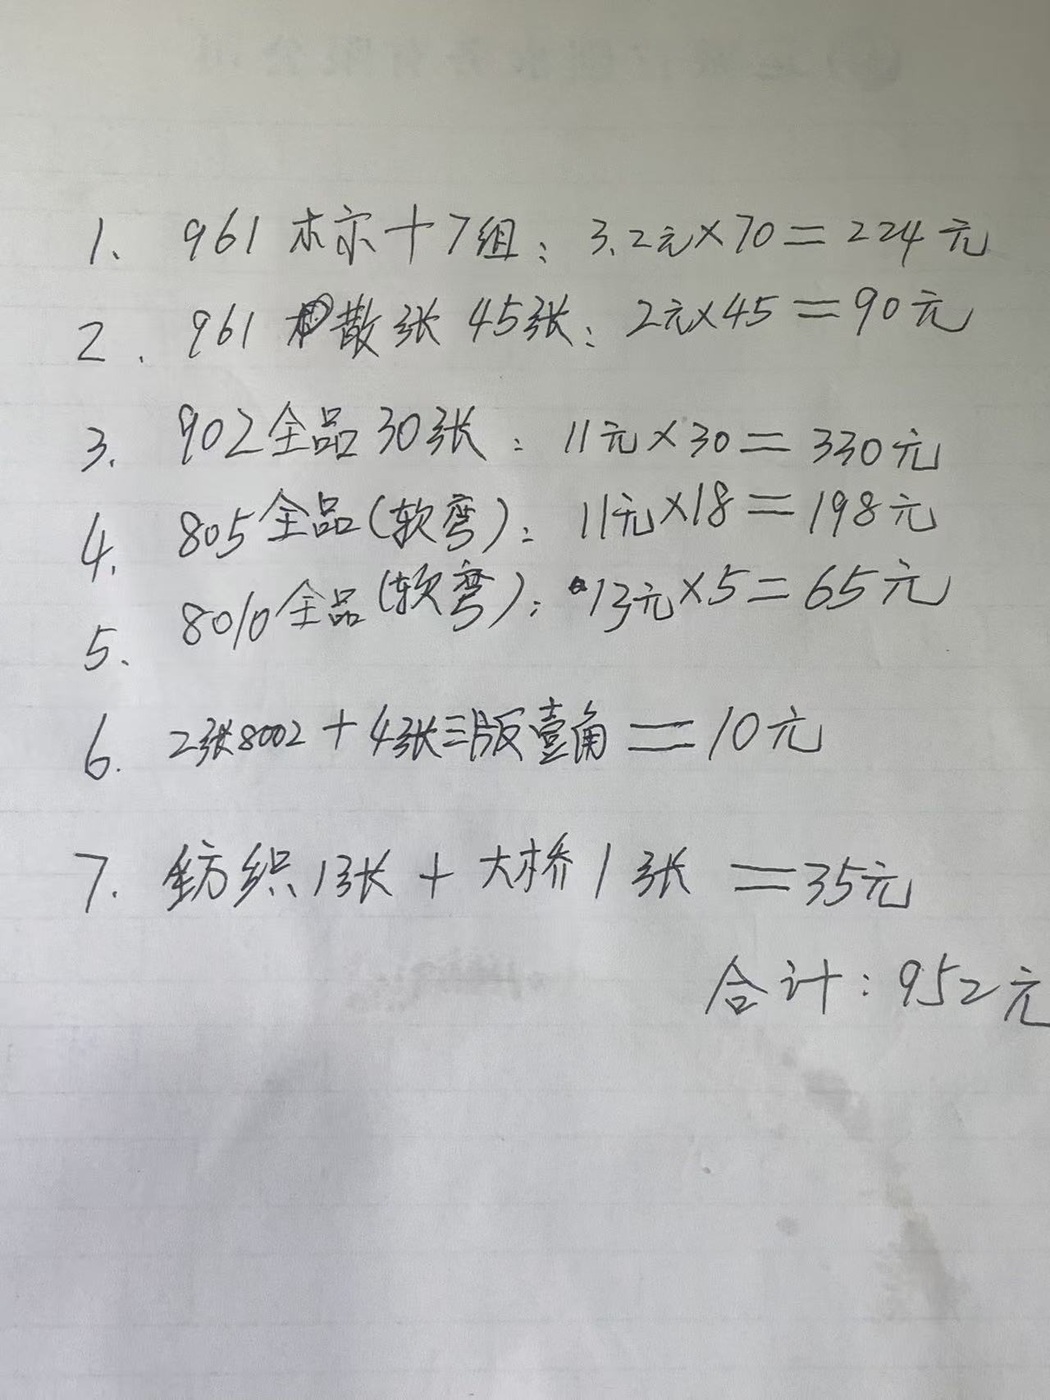 1、 961 标十7组：3.2元×70＝224元
2. 961 散张 45张：2元×45＝90元
3. 902全品30张：11元×30＝330元
4. 805全品(软弯)：11元×18＝198元
5、 8010全品(软弯)：13元×5＝65元
6. 2张8002＋4张三版壹角＝10元
7. 纺织1张＋大桥1张＝35元
合计：952元